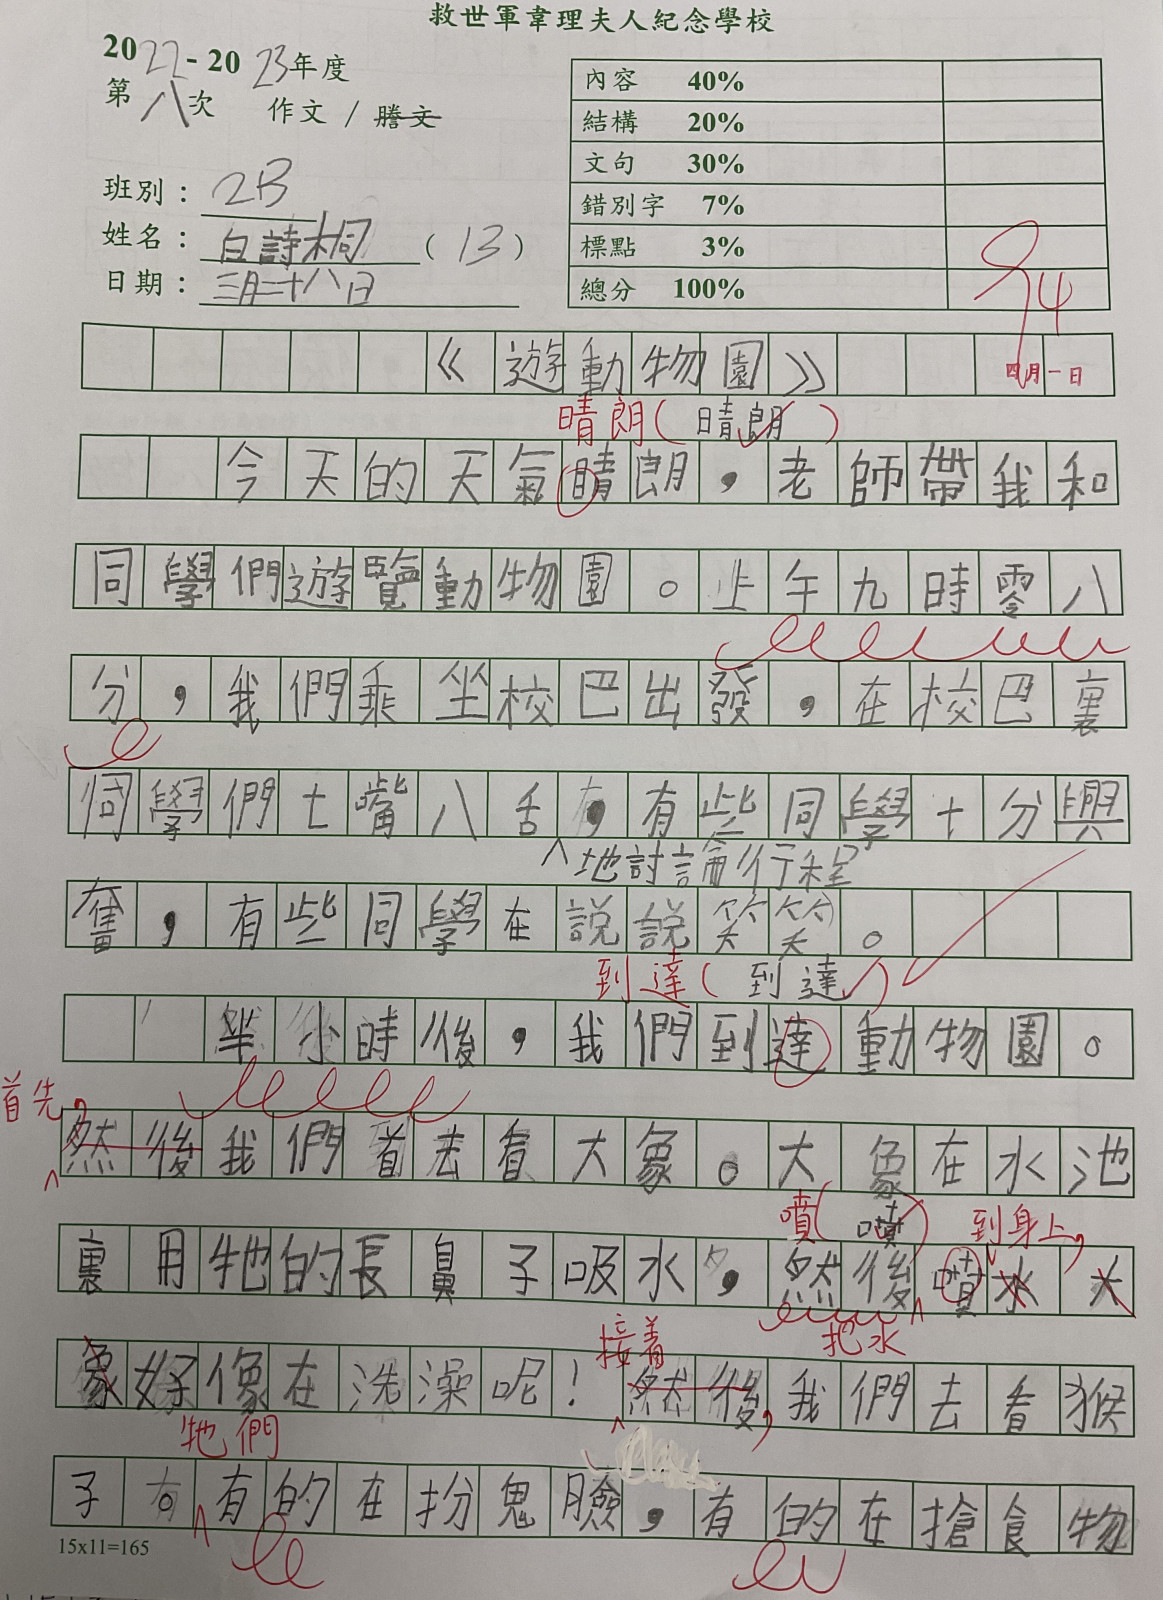 救世軍韋理夫人紀念學校
2022-2023年度
第八次 作文 / 謄文
班別：2B
姓名：白詩桐（13）
日期：三月二十八日
內容 40%
結構 20%
文句 30%
錯別字 7%
標點 3%
總分 100%
94
四月一日
《遊動物園》
晴朗（晴朗）
今天的天氣晴朗，老師帶我和
同學們遊覽動物園。上午九時零八
分，我們乘坐校巴出發，在校巴裏
同學們七嘴八舌，有些同學十分興
地討論行程
奮，有些同學在說說笑笑。
到達（到達）
半小時後，我們到達動物園。
首先，
然後我們首去看大象。大象在水池
噴（噴） 到身上，
裏用牠的長鼻子吸水，然後噴水大
把水
接着
象好像在洗澡呢！然後，我們去看猴
牠們
子。有的在扮鬼臉，有的在搶食物
15x11=165